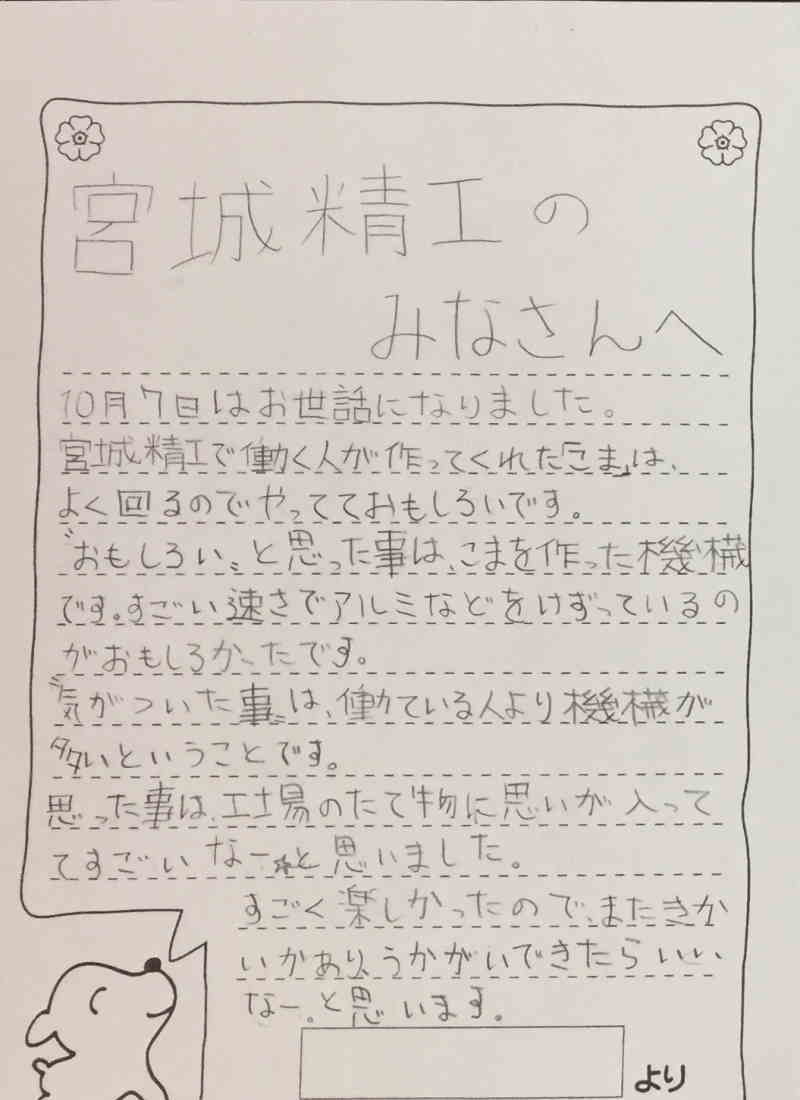 宮城精工の
みなさんへ
10月7日はお世話になりました。
宮城精工で働く人が作ってくれた「こま」は、
よく回るのでやってておもしろいです。
〝おもしろい〟と思った事は、こまを作った機械
です。すごい速さでアルミなどをけずっているの
がおもしろかったです。
〝気がついた事〟は、働ている人より機械が
多いということです。
思った事は、工場のたて物に思いが入って
てすごいなー☆と思いました。
すごく楽しかったので、またきか
いがあり、うかがいできたらいい
なー。と思います。
より